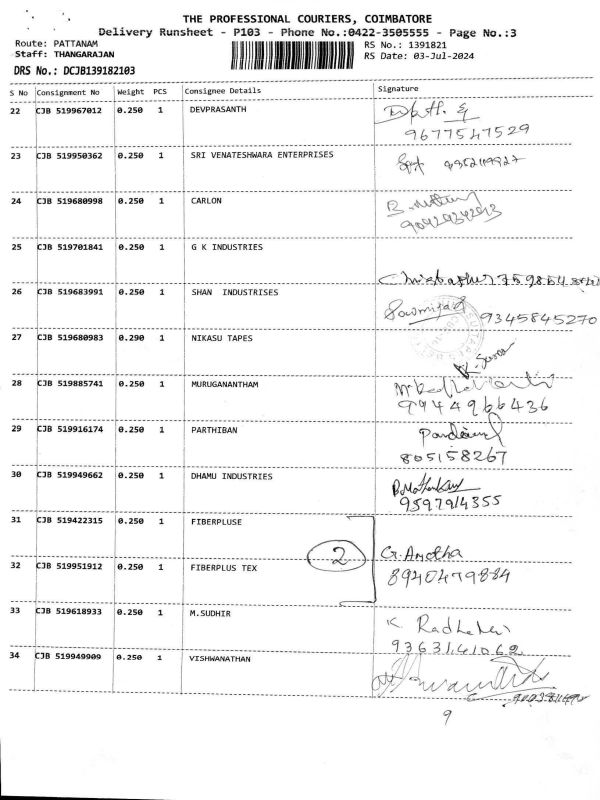 THE PROFESSIONAL COURIERS, COIMBATORE
Delivery Runsheet - P103 - Phone No.:0422-3505555 - Page No.:3
Route: PATTANAM RS No.: 1391821
Staff: THANGARAJAN RS Date: 03-Jul-2024
DRS No.: DCJB139182103
S No Consignment No Weight PCS Consignee Details Signature
22 CJB 519967012 0.250 1 DEVPRASANTH
9677547529
23 CJB 519950362 0.250 1 SRI VENATESHWARA ENTERPRISES
24 CJB 519680998 0.250 1 CARLON
25 CJB 519701841 0.250 1 G K INDUSTRIES
26 CJB 519683991 0.250 1 SHAN INDUSTRISES
9345845270
27 CJB 519680983 0.290 1 NIKASU TAPES
28 CJB 519885741 0.250 1 MURUGANANTHAM
9944966436
29 CJB 519916174 0.250 1 PARTHIBAN
805158267
30 CJB 519949662 0.250 1 DHAMU INDUSTRIES
9597914355
31 CJB 519422315 0.250 1 FIBERPLUSE
2 G. Amotha
32 CJB 519951912 0.250 1 FIBERPLUS TEX
8940479884
33 CJB 519618933 0.250 1 M.SUDHIR
K
9363141062
34 CJB 519949909 0.250 1 VISHWANATHAN
9